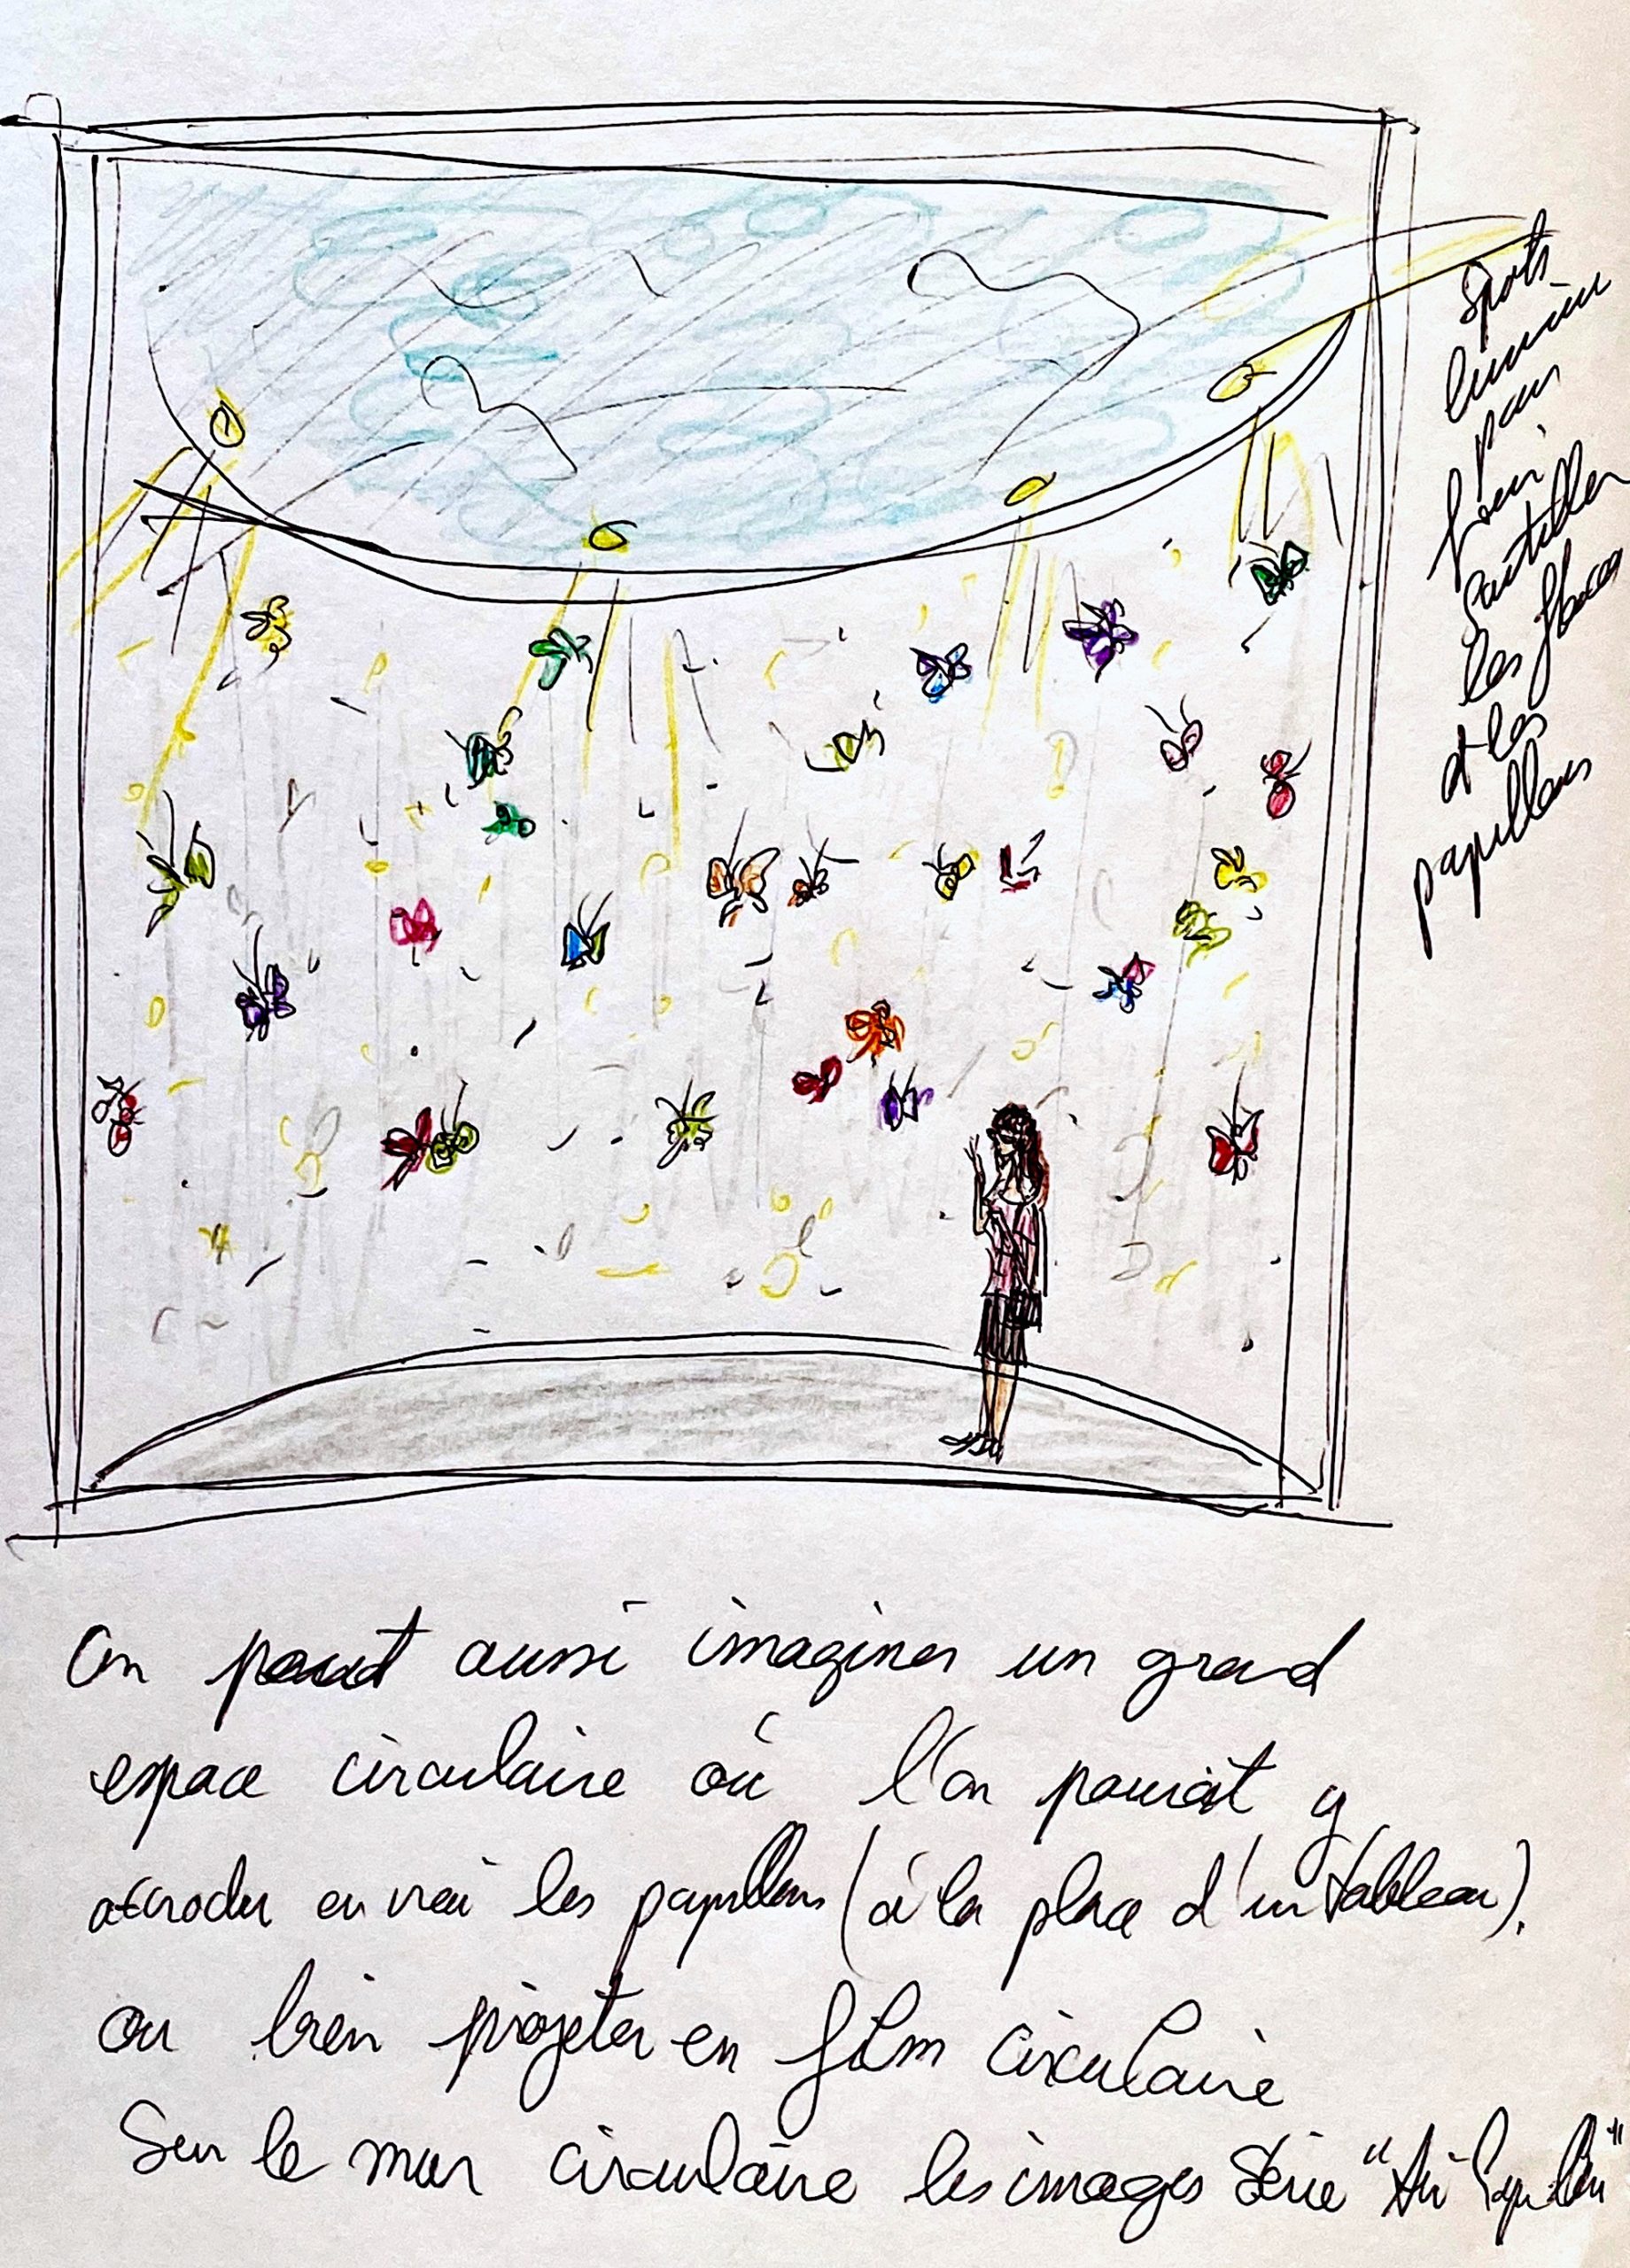 Spots
lumière
pour
faire
Scintiller
les
et les
papillons
On peut aussi imaginer un grand
espace circulaire où l'on pourrait y
accrocher en vrai les papillons (à la place d'un tableau).
ou bien projeter en film circulaire
Sur le mur circulaire les images série " Papillon"